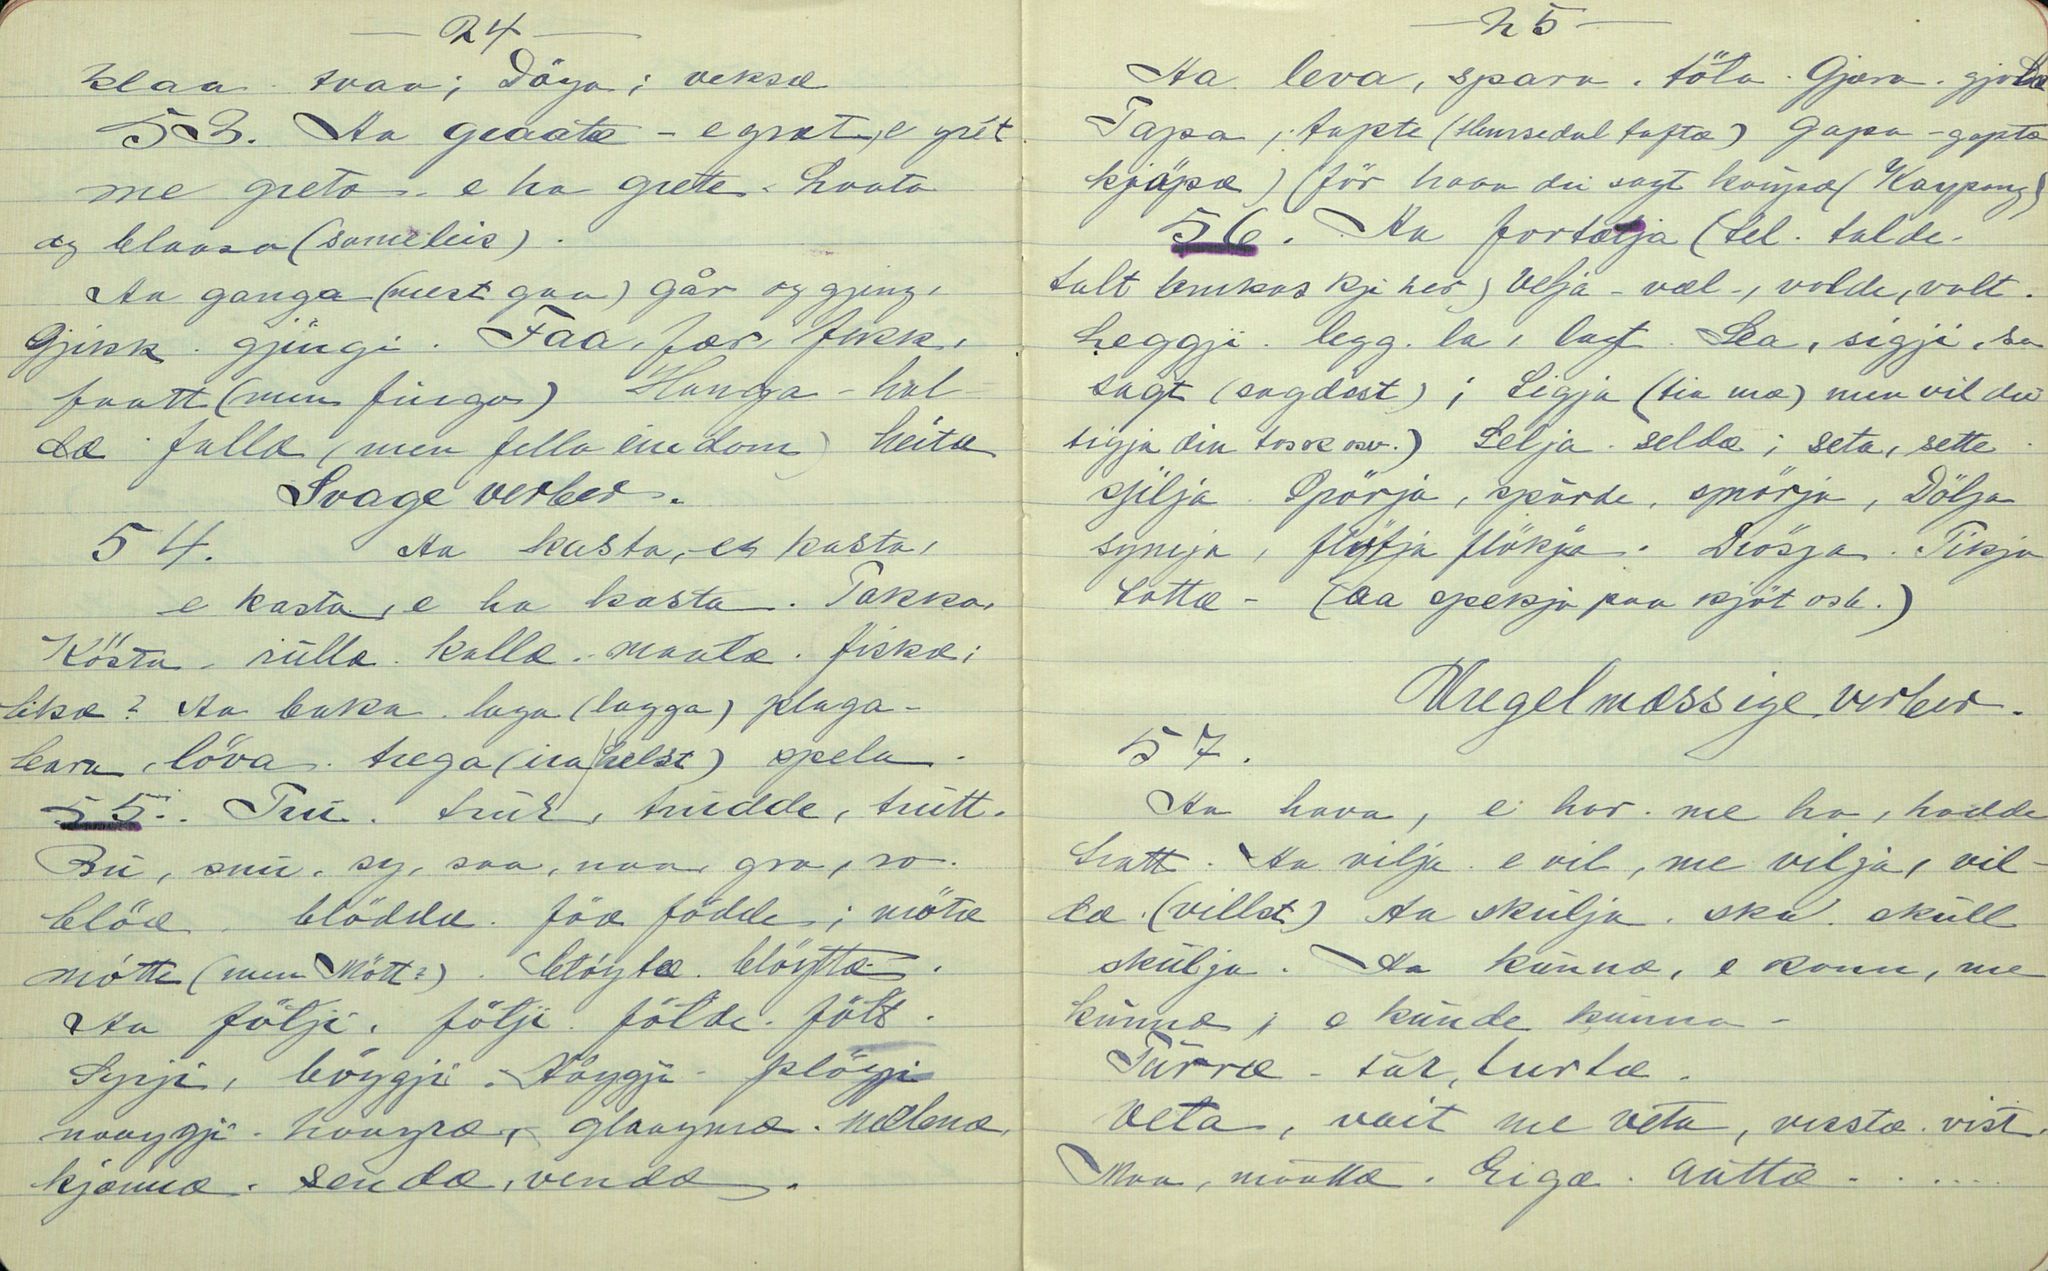 — 24 —
klaa. tvaa; Döya; veksæ
53. Aa graatæ - e græt, e grét
me greta. e ha grete. Laata
og blaasa (sameleis).
Aa ganga (mest gaa) går og gjeng,
Gjikk. gjingi. Faa, fær, fekk,
faatt (men fingo) Hanga - hal-
da. falla (men fella einedom) heita
Svage verber.
54. Aa kasta, - e kasta,
e kasta, e ha kasta. Takka,
Kösta. rulla. kallæ. maala. fiska;
lika? Aa baka. laga (lagga) plaga -
bara, löva. trega (ira helst) spela.
55. Tru. trur, trudde, trutt.
Bu, snu. sy, saa, naa, gro, ro.
blöa. blödde. föa födde; möta
mötte (men Mött?). blöyta. blöytte.
Aa följi. följi. földe. fölt.
Syrji, böygji. Höyggja - plögji
naaggji. haayra, glaayma. nælena,
kjenna. senda, venda.
— 25 —
Aa leva, spara. töla. Gjæra. gjorde
Tapa, tapte (Hemsedal tafta) Gapa - gapta
kjöpa) (för haar du sagt kaupa (Kaypang)
56. Aa fortælja (tel. talde.
talt brukas kji her) Velja - væl -, valde, valt.
Leggji. legg. la, lagt. Sea, sigji, sa
sagt (sagdest); Ligja (tia ma) men vil du
tigja din tosk osv.) Selja. selde; seta, sette.
skjilja. Spörja, spurde, smörja, Dölja
synja, flytja flökja. Drösja. Tikja
totte - (aa spekja paa kjöt osb.)
Uregelmæssige verber.
57.
Aa hava, e har. me ha, hadde
hatt. Aa vilja. e vil, me vilja, vil-
da. (villst) Aa skulja. ska. skull
skulja. Aa kunna, e konn, me
kunna; e kunde kunna -
Turra - tur, turta.
Veta, vait me veta, vissta. vist.
Maa, maatta. Eiga. aatta. . ....